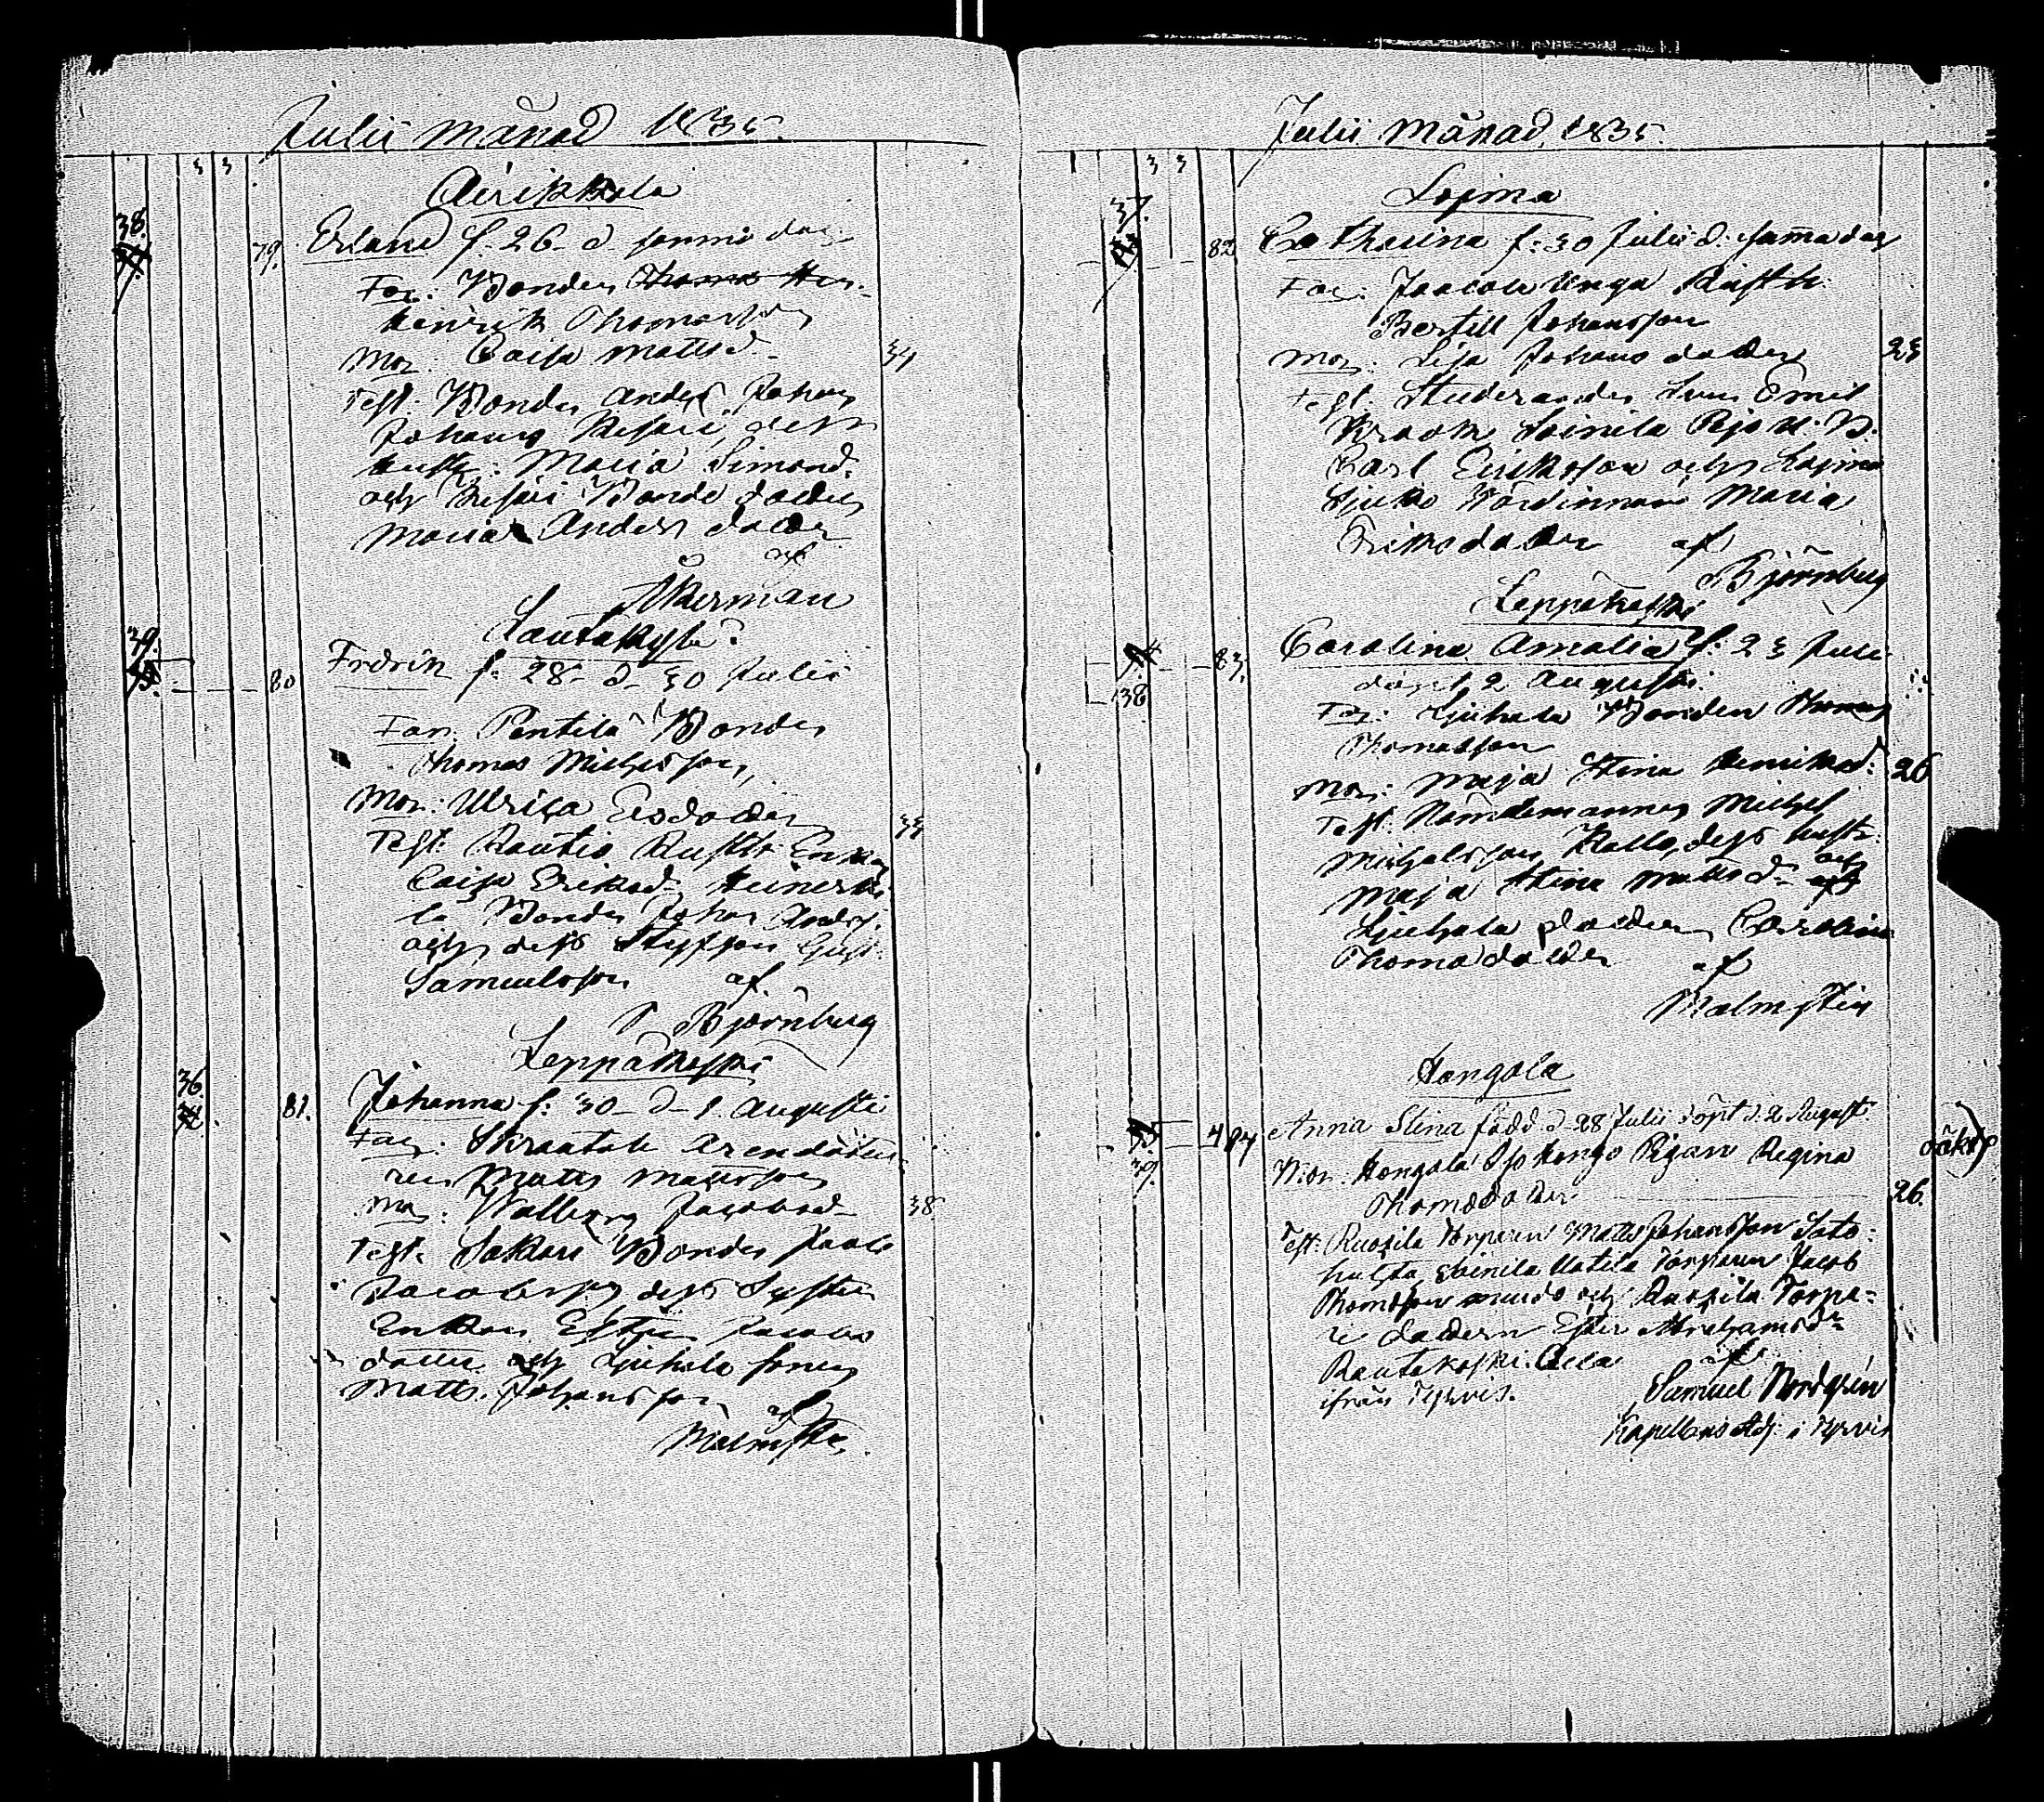 Julii månad 1835.
Äirikkala
38.
79. Erland f. 26 d. samma dag
Far: Bonden Thomas Hen-
Henrik Thomasson
Mor: Caisa Mattsd. 34
Test: Bonden Anders Johans
Johans dess
hustr: Maria Simonsd.
och Bonde dottren
Maria Anders dotter
af
Åkerman
Lautakylä
39.
80 Fredrik f. 28 d. 30 Julii
Far: Pentilä Bonden
Thomas Michelsson,
Mor: Ulrica Ersdotter 33
Test: Rautio Rusth. Enkan
Caisa Eriksd. Heinerki-
la Bonden Johan Anders.
och dess Styfson Gust.
Samuelsson af
Björnberg
Leppäkoski
36.
81. Johanna f. 30 d. 1 Augusti
Far: Arendato-
ren Matts Mattsson
Mor: Walborg Jacobsd. 38
Test. Sakari Bonden Jacob
Jacobsson dess Syster
Enkan Ester Jacobs
dotter och Ljuhala sonen
Matts Johansson
af
Malmsten
Julii Månad, 1835.
Loima
37.
82 Catharina f. 30 Julii d. samma dag
Far: Jaacola unga Rusth.
Bertill Johansson
Mor: Lisa Johans dotter 23
Test. Studeranden Sven Emil
Krook Soinila
Carl Eriksson och Loima
Sjukko Wärdinnan Maria
Eriksdotter af
Björnberg
Leppäkoski
83. Carolina Amalia f. 23 Julii
138 döpt 2 Augusti.
Far: Ljuhala Bonden Thomas
Thomasson
Mor: Maja Stina Henriksd. 26
Test: Nämdemannen Michel
Michelsson Kallo, dess hustr.
Maja Stina Mattsd. och
Ljuhala dottren Carolina
Thomasdotter af
Malmsten
Hongola
4 84 Anna Stina född d. 28 Julii döpt d. 2 August. oäkta
39. Mor: Hongola Spo Hongo Pigan Regina
Thomasdotter 26.
Test: Ruoxila Torparen Matts Johansson Sato-
hulta, Soinila Uotila Torparen Jacob
Thomasson och Ruoxila Torpa-
re dottren Ester Michaelsdr
Rautakoski
ifrån Tyrvis. af
Samuel Nordgren
Kapellans Adj. i Tyrvis